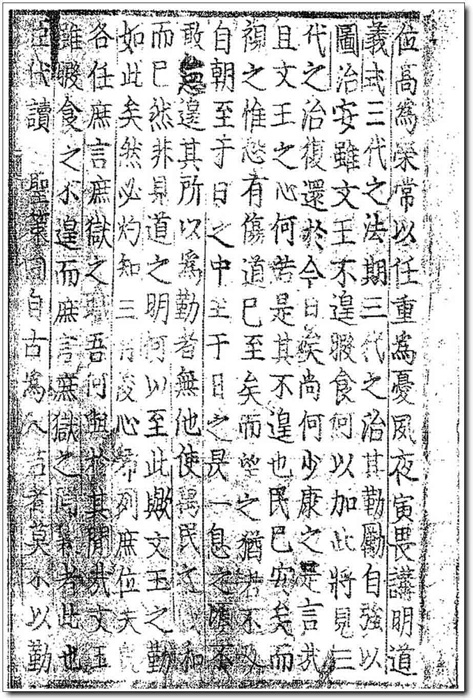 位高爲榮常以任重爲憂夙夜寅畏講明道
義式三代之法期三代之治其勤勵自強以
圖治安雖文王不遑暇食何以加此將見三
代之治復還於今日矣尚何少康之是言哉
且文王之心何若是其不遑也民已安矣而
視之惟恐有傷道已至矣而望之猶若不及
自朝至于日之中至于日之昃一息之頃不
敢邊其所以爲勤者無他使萬民之咸和
而已然非見道之明何以至此歟文王之勤
如此矣然必灼知三有俊心列庶位夫
各任庶言庶獄之職吾何與於其間哉文王
雖暇食之不遑而庶言庶獄之罔兼者此也
臣伏讀　聖策曰自古爲人君者莫不以勤